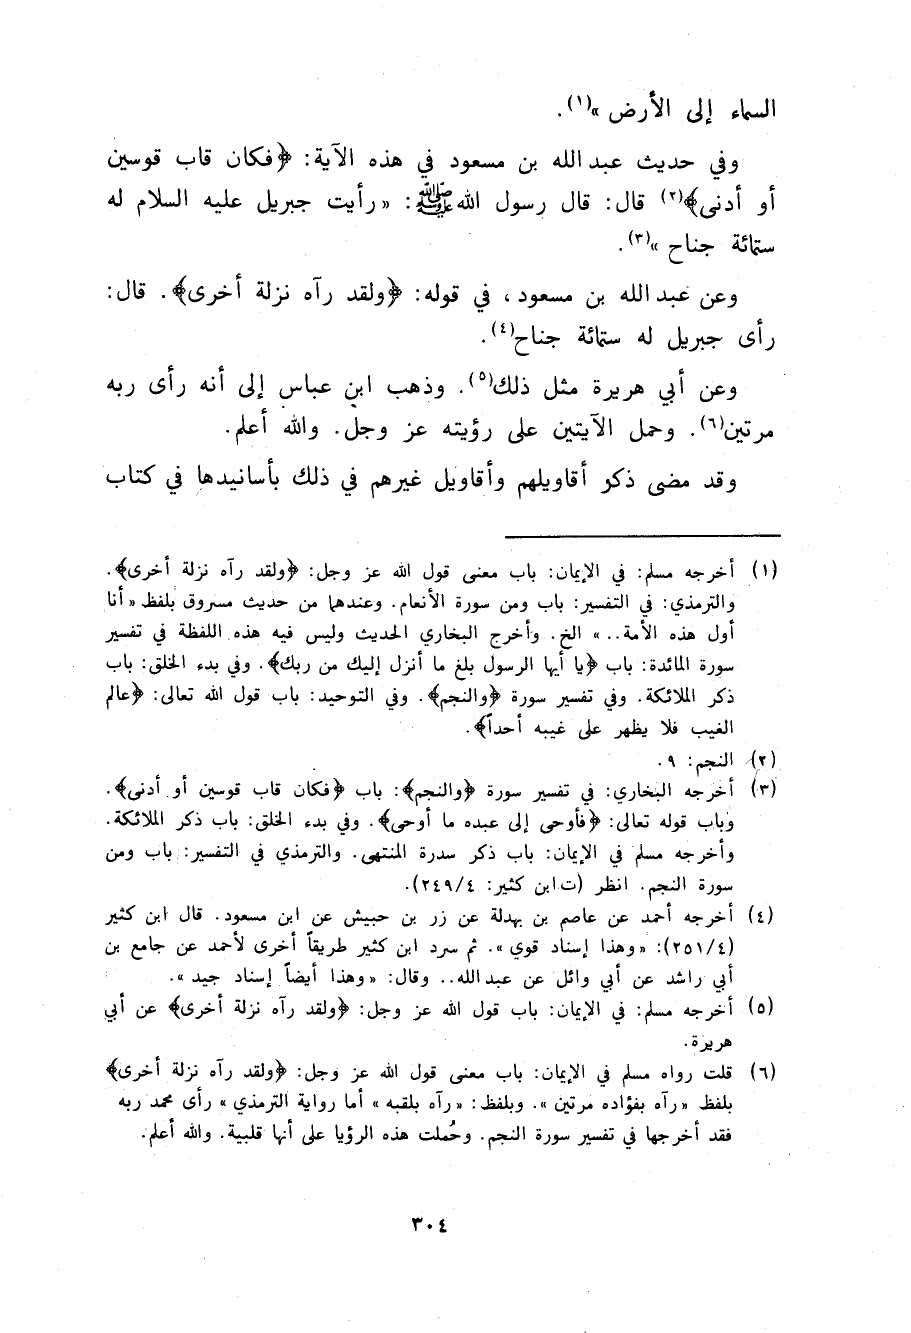 السماء إلى الأرض »(١).
وفي حديث عبد الله بن مسعود في هذه الآية: ﴿فكان قاب قوسين
أو أدنى﴾(٢) قال: قال رسول الله ﷺ: « رأيت جبريل عليه السلام له
ستمائة جناح »(٣).
وعن عبد الله بن مسعود، في قوله: ﴿ولقد رآه نزلة أخرى﴾. قال:
رأى جبريل له ستمائة جناح(٤).
وعن أبي هريرة مثل ذلك(٥). وذهب ابن عباس إلى أنه رأى ربه
مرتين(٦). وحمل الآيتين على رؤيته عز وجل. والله أعلم.
وقد مضى ذكو أقاويلهم وأقاويل غيرهم في ذلك بأسانيدها في كتاب
(١) أخرجه مسلم: في الإيمان: باب معنى قول الله عز وجل: ﴿ولقد رآه نزلة أخرى﴾.
والترمذي: في التفسير: باب ومن سورة الأنعام. وعندهما من حديث مسروق بلفظ « أنا
أول هذه الأمة.. » الخ. وأخرج البخاري الحديث وليس فيه هذه اللفظة في تفسير
سورة المائدة: باب ﴿يا أيها الرسول بلغ ما أنزل إليك من ربك﴾. وفي بدء الخلق: باب
ذكر الملائكة. وفي تفسير سورة ﴿والنجم﴾. وفي التوحيد: باب قول الله تعالى: ﴿عالم
الغيب فلا يظهر على غيبه أحداً﴾.
(٢) النجم: ٩.
(٣) أخرجه البخاري: في تفسير سورة ﴿والنجم﴾: باب ﴿فكان قاب قوسين أو أدنى﴾.
وباب قوله تعالى: ﴿فأوحى إلى عبده ما أوحى﴾. وفي بدء الخلق: باب ذكر الملائكة.
وأخرجه مسلم في الإيمان: باب ذكر سدرة المنتهى. والترمذي في التفسير: باب ومن
سورة النجم. انظر (ت ابن كثير: ٢٤٩/٤).
(٤) أخرجه أحمد عن عاصم بن بهدلة عن زر بن حبيش عن ابن مسعود. قال ابن كثير
(٢٥١/٤): « وهذا إسناد قوي ». ثم سرد ابن كثير طريقاً أخرى لأحمد عن جامع بن
أبي راشد عن أبي وائل عن عبد الله.. وقال: « وهذا أيضاً إسناد جيد ».
(٥) أخرجه مسلم: في الإيمان: باب قول الله عز وجل: ﴿ولقد رآه نزلة أخرى﴾ عن أبي
هريرة.
(٦) قلت رواه مسلم في الإيمان: باب معنى قول الله عز وجل: ﴿ولقد رآه نزلة أخرى﴾
بلفظ « رآه بفؤاده مرتين ». وبلفظ: « رآه بلقبه » أما رواية الترمذي » رأى محمد ربه
فقد أخرجها في تفسير سورة النجم. وحُملت هذه الرؤيا على أنها قلبية. والله أعلم.
٣٠٤